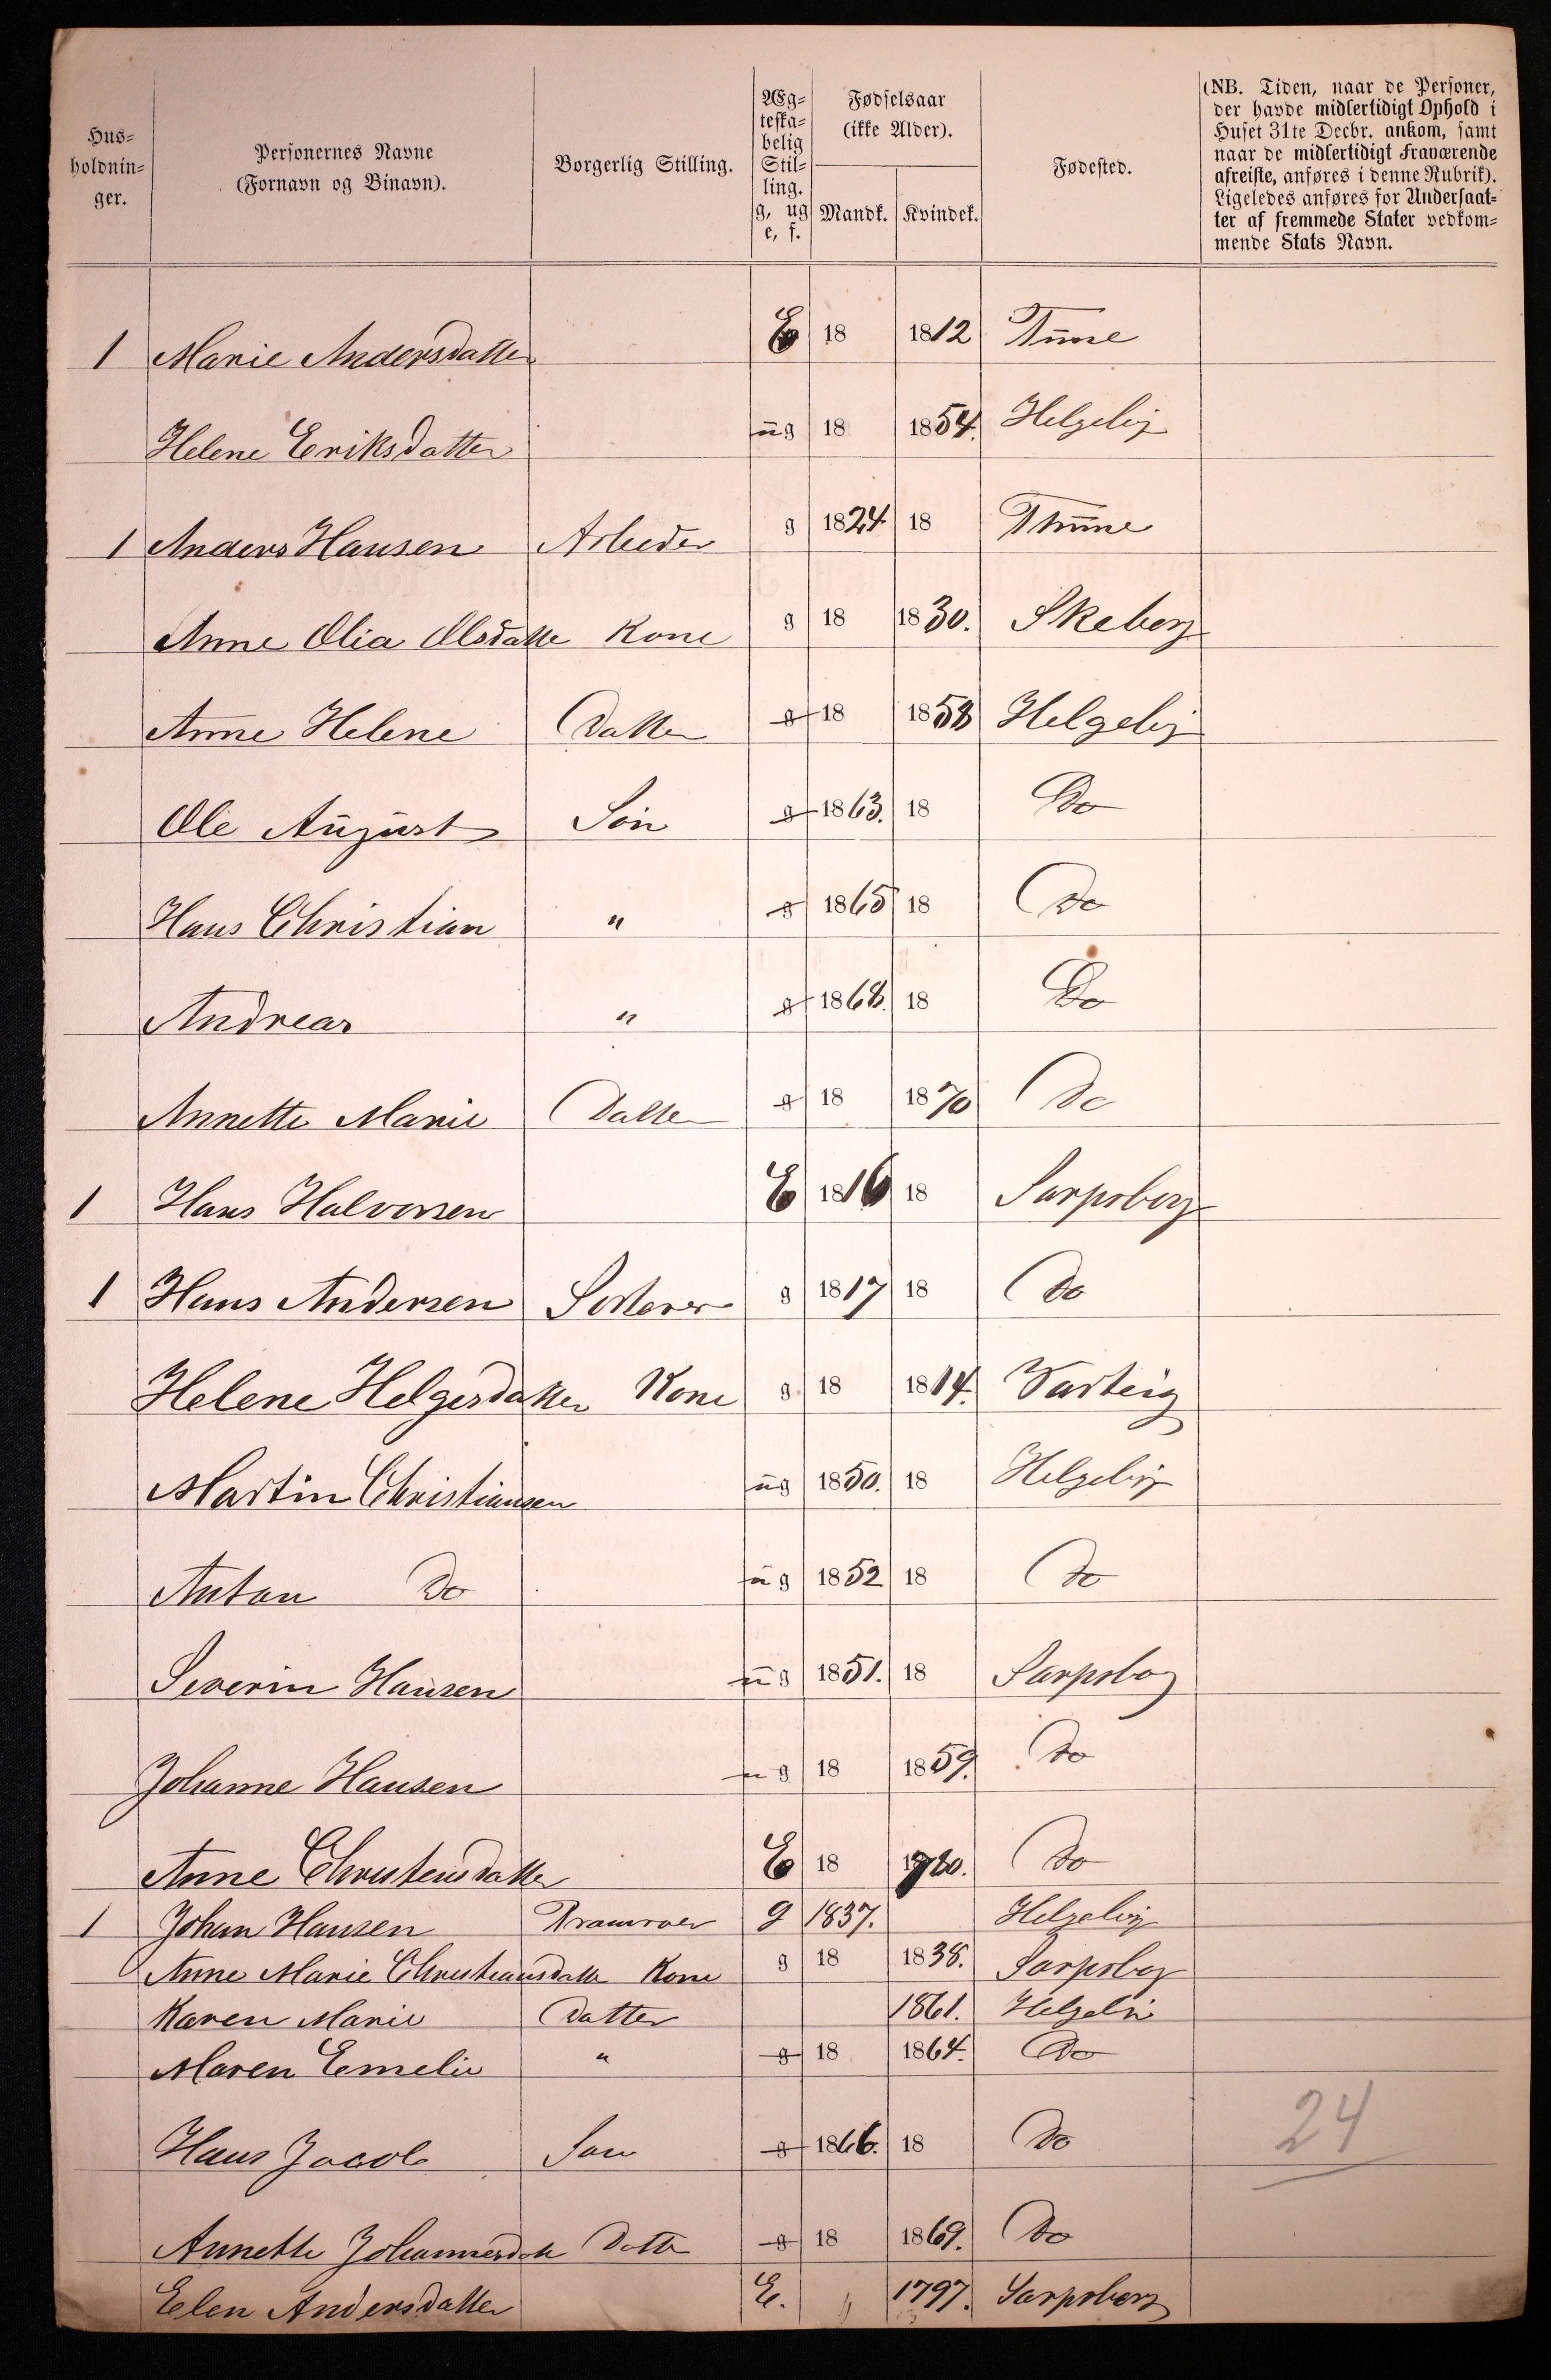 Hus=
holdnin=
ger.
Personernes Navne
(Fornavn og Binavn).
Borgerlig Stilling.
Æg=
teska=
belig
Stil=
ling.
g, ug
e, f.
Fødselsaar
(ikke Alder).
Mandk. Kvindek.
Fødested.
(NB. Tiden, naar de Personer,
der havde midlertidigt Ophold i
Huset 31te Decbr. ankom, samt
naar de midlertidigt Fraværende
afreiste, anføres i denne Rubrik).
Ligeledes anføres for Undersaat=
ter af fremmede Stater vedkom=
mende Stats Navn.
1 Marie Andersdatter E 18 1812 Tune
Helene Eriksdatter ug 18 1854. Helgeby
1 Anders Hansen Arbeider g 1824 18 Thune
Anne Olia Olsdatte Kone g 18 1830. Skeberg
Anne Helene Datter g 18 1858 Helgeby
Ole August Søn g 1863. 18 Do
Hans Christian " g 1865 18 Do
Andreas " g 1868. 18 Do
Annette Marie Datter g 18 1870 Do
1 Hans Halvorsen E 1816 18 Sarpsborg
1 Hans Andersen g 1817 18 Do
Helene Helgesdatter Kone g 18 1814. Varteig
Martin Christiansen ug 1850. 18 Helgeby
Anton Do ug 1852 18 Do
Severin Hansen ug 1851. 18 Sarpsborg
Johanne Hansen ug 18 1859. Do
Anne Christensdatter E 18 1780. Do
1 Johan Hansen Pramroer g 1837. Helgeby
Anne Marie Christiansdatte Kone g 18 1838. Sarpsborg
Karen Marie Datter 1861. Helgeby
Maren Emelie " g 18 1864. Do
Hans Jacob Søn g 1866. 18 Do
24
Annette Johannesdatte Datte g 18 1869. Do
Elen Andersdatter E. 1797. Sarpsborg